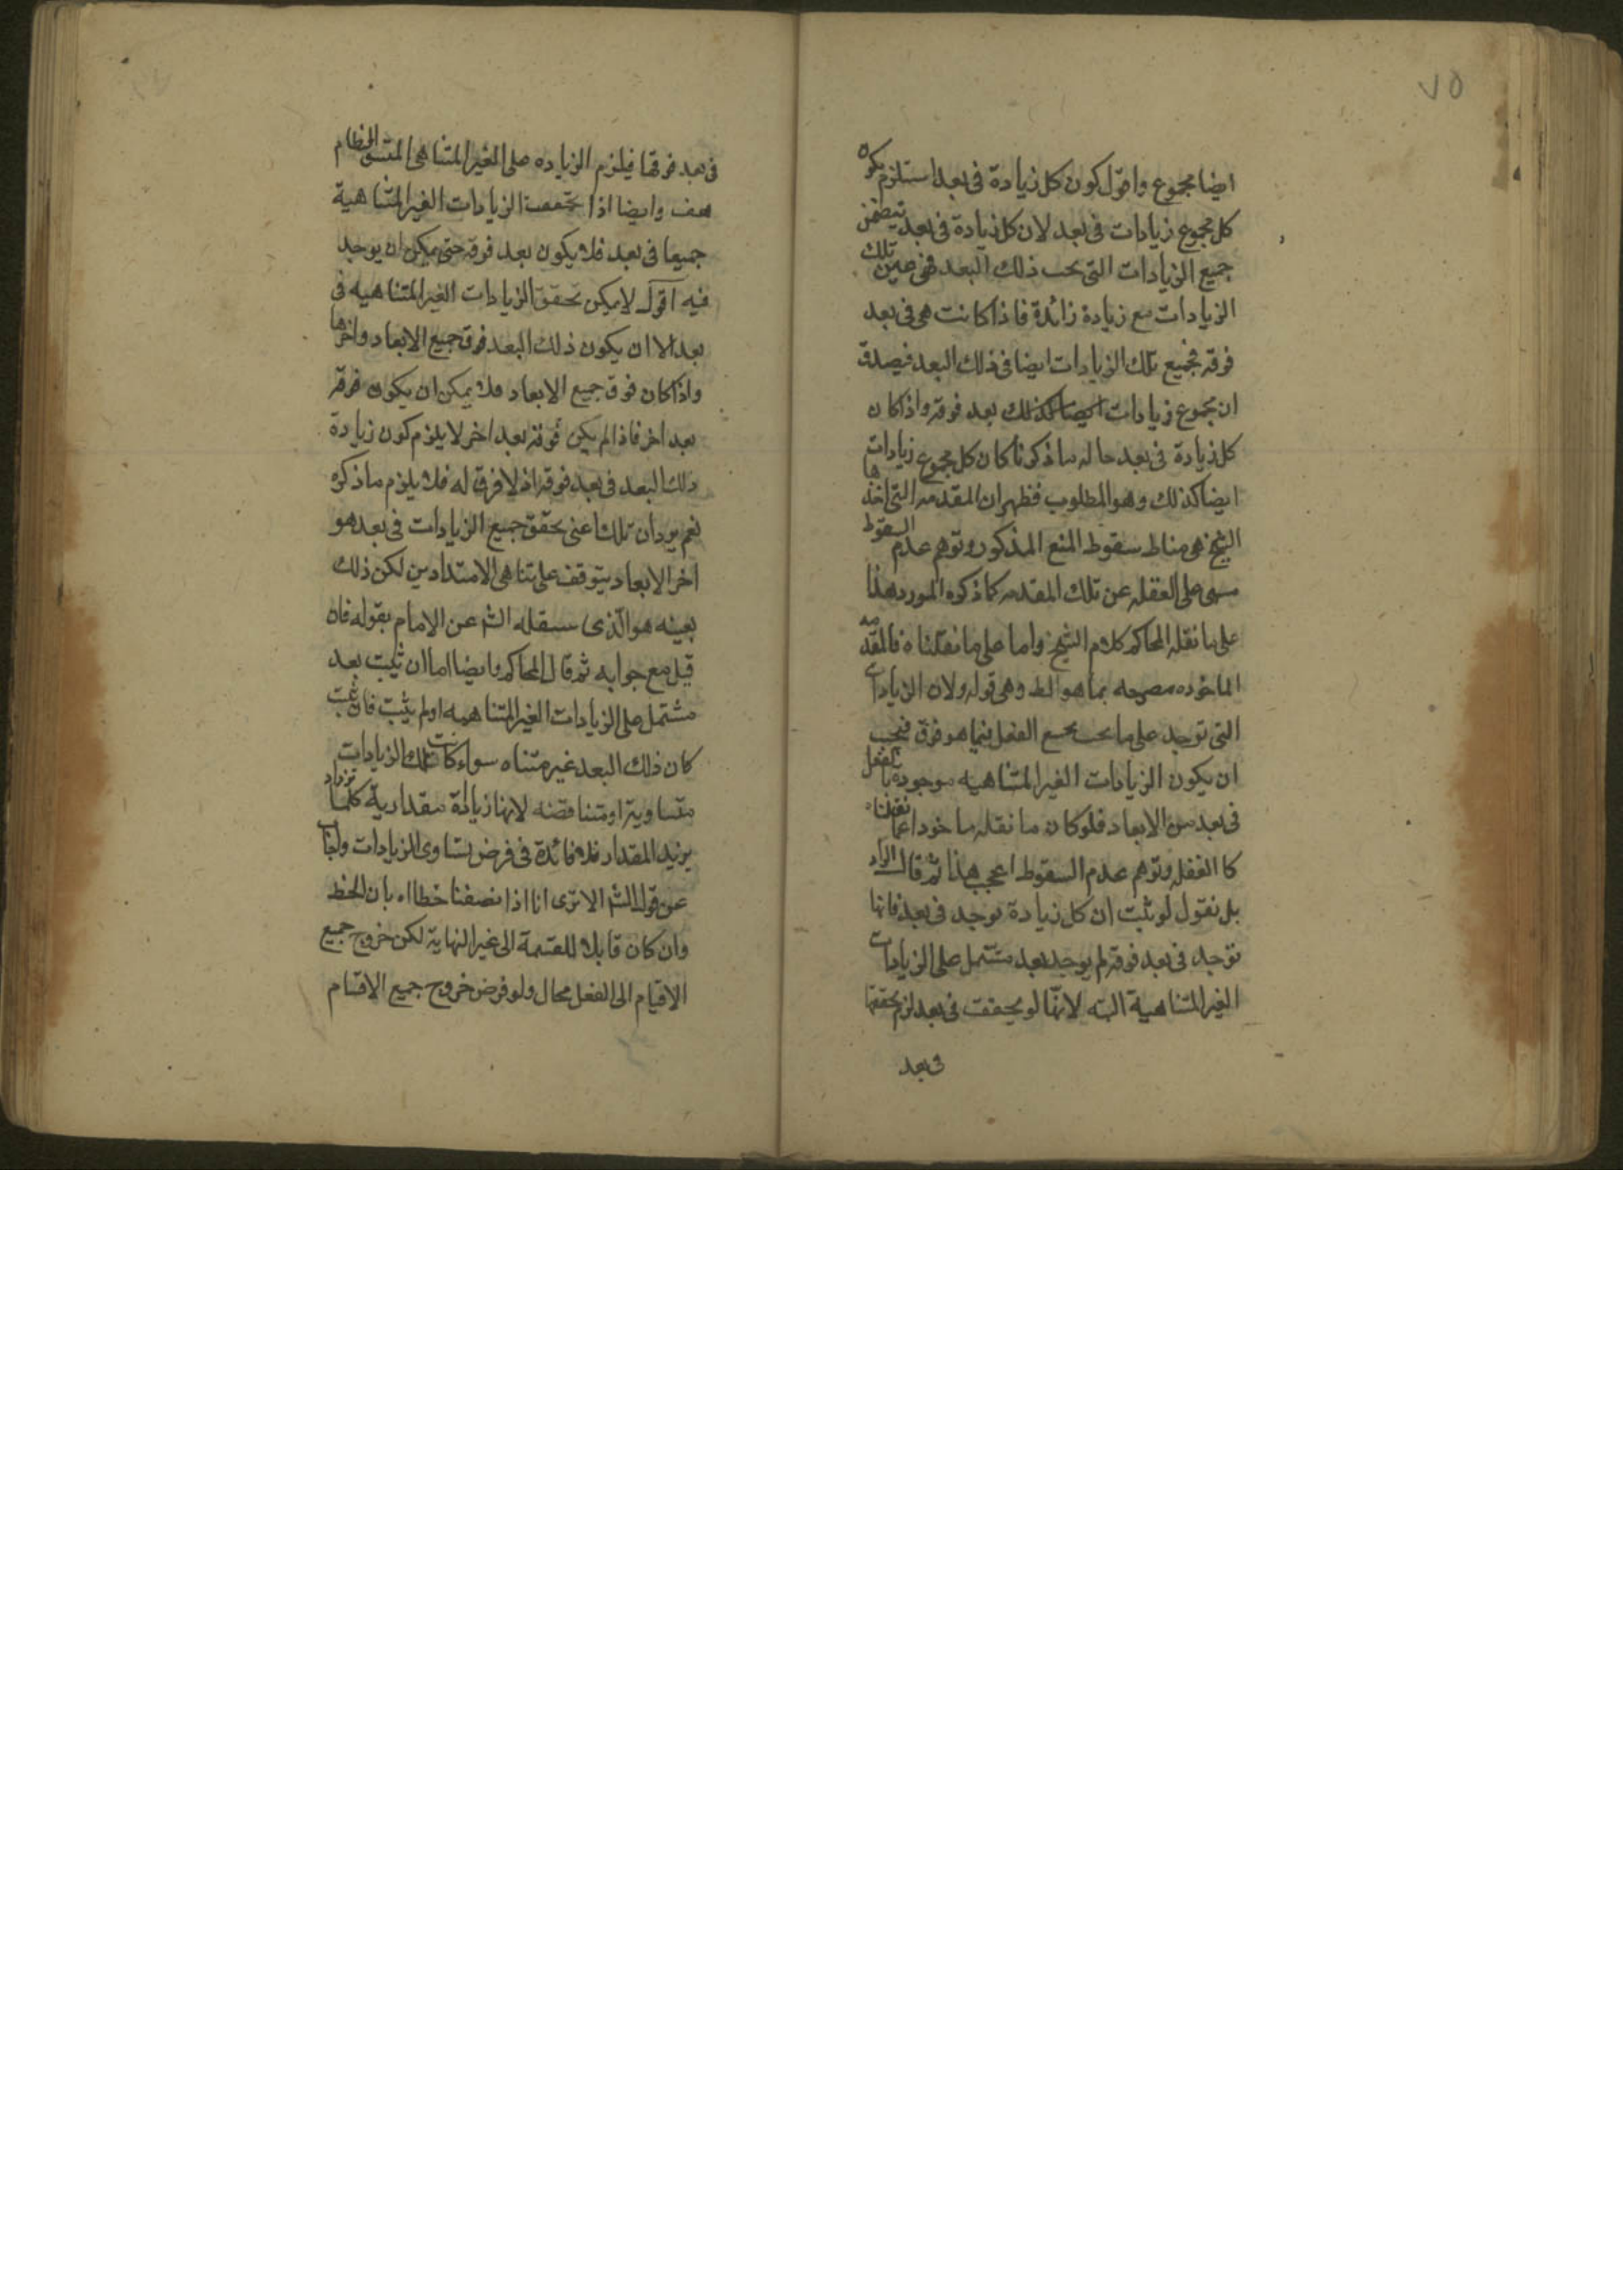 ٧٥
ايضا مجموع واقول كون كل زيادة في بعد استلزم يكون
كل مجموع زيادات في بعد لان كل زيادة في بعد يتضمن
جميع الزيادات التي تحت ذلك البعد فهي عين تلك
الزيادات مع زيادة زائدة فاذا كانت هي في بعد
فوقه فجميع تلك الزيادات ايضا في ذلك البعد فيصدق
ان مجموع زيادات ايضا كذلك بعد فوقه واذا كان
كل زيادة في بعد حاله ما ذكرنا كان كل مجموع زيادات
ايضا كذلك وهو المطلوب فظهر ان المقدمه التي اخذها
الشيخ هي مناط سقوط المنع المذكور وتوهم عدم السقوط
مبنى على الغفله عن تلك المقدمه كما ذكره المورد هذا
على ما نقله المحاكم كلام الشيخ واما على ما نقلناه فالمقدمه
الماخوذه مصرحه بما هو المط وهي قوله ولان الزيادات
التي توجد على ما تحت يجمع الفعل فيما هو فوق فيجب
ان يكون الزيادات الغير المتناهيه موجوده بالفعل
في بعد من الابعاد فلو كان ما نقله ماخوذا عما نقلناه
كا الغفله وتوهم عدم السقوط اعجب هذا ثم قال
بل نقول لو ثبت ان كل زيادة توجد في بعد فانها
توجد في بعد فوقه لم يوجد بعد مشتمل على الزيادات
الغير المتناهية البته لانها لو تحققت في بعد لزم تحققها
في بعد
في بعد فوقها فيلزم الزياده على الغير المتناهي المتسق النظام
هف وايضا اذا تحققت الزيادات الغير المتناهية
جميعا في بعد فلا يكون بعد فوقه حتى يمكن ان يوجد
فيه اقول لا يمكن تحقق الزيادات الغير المتناهيه في
بعد الا ان يكون ذلك البعد فوق جميع الابعاد واخرها
واذا كان فوق جميع الابعاد فلا يمكن ان يكون فوقه
بعد اخر فاذا لم يكن فوقه بعد اخر لا يلزم كون زيادة
ذلك البعد في بعد فوقه اذ لا فوق له فلا يلزم ما ذكره
نعم يرد ان تلك اعنى تحقق جميع الزيادات في بعد هو
اخر الابعاد يتوقف على تناهي الامتدادين لكن ذلك
بعينه هو الذي سينقله الش عن الامام بقوله فان
قيل مع جوابه ثم قال المحاكم وايضا اما ان ثبت بعد
مشتمل على الزيادات الغير المتناهيه او لم يثبت فان ثبت
كان ذلك البعد غير متناه سواء كانت تلك الزيادات
متساوية او متناقصه لانها زيادة مقدارية كلما تزداد
يزيد المقدار فلا فائدة في فرض تساوي الزيادات
عن قول الش الا ترى انا اذا نصفنا خطا اه بان الخط
وان كان قابلا للقسمة الى غير النهاية لكن خروج جميع
الاقسام الى الفعل محال ولو فرض خروج جميع الاقسام